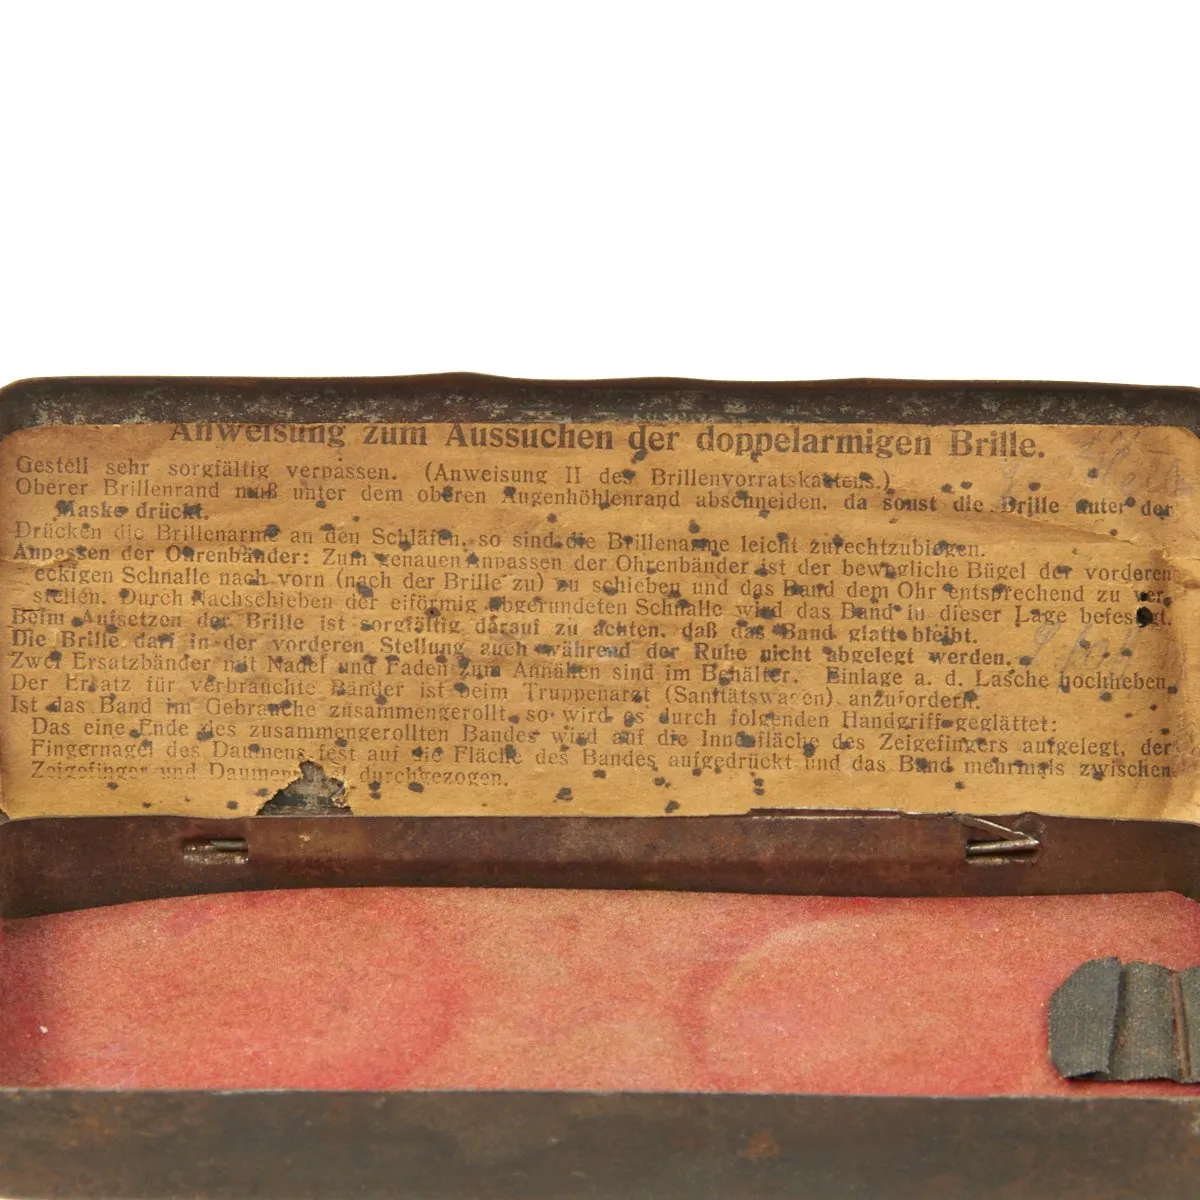 Anweisung zum Aussuchen der doppelarmigen Brille.
Gestell sehr sorgfältig verpassen. (Anweisung II des Brillenvorratskastens.)
Oberer Brillenrand muß unter dem oberen Augenhöhlenrand abschneiden, da sonst die Brille unter der
Maske drückt.
Drücken die Brillenarme an den Schläfen, so sind die Brillenarme leicht zurechtzubiegen.
Anpassen der Ohrenbänder: Zum genauen Anpassen der Ohrenbänder ist der bewegliche Bügel der vorderen
eckigen Schnalle nach vorn (nach der Brille zu) zu schieben und das Band dem Ohr entsprechend zu ver-
stellen. Durch Nachschieben der eiförmig abgerundeten Schnalle wird das Band in dieser Lage befestigt.
Beim Aufsetzen der Brille ist sorgfältig darauf zu achten, daß das Band glatt bleibt.
Die Brille darf in der vorderen Stellung auch während der Ruhe nicht abgelegt werden.
Zwei Ersatzbänder mit Nadel und Faden zum Annähen sind im Behälter. Einlage a. d. Lasche hochheben.
Der Ersatz für verbrauchte Bänder ist beim Truppenarzt (Sanitätswagen) anzufordern.
Ist das Band im Gebrauche zusammengerollt, so wird es durch folgenden Handgriff geglättet:
Das eine Ende des zusammengerollten Bandes wird auf die Innenfläche des Zeigefingers aufgelegt, der
Fingernagel des Daumens fest auf die Fläche des Bandes aufgedrückt und das Band mehrmals zwischen
Zeigefinger und Daumen durchgezogen.